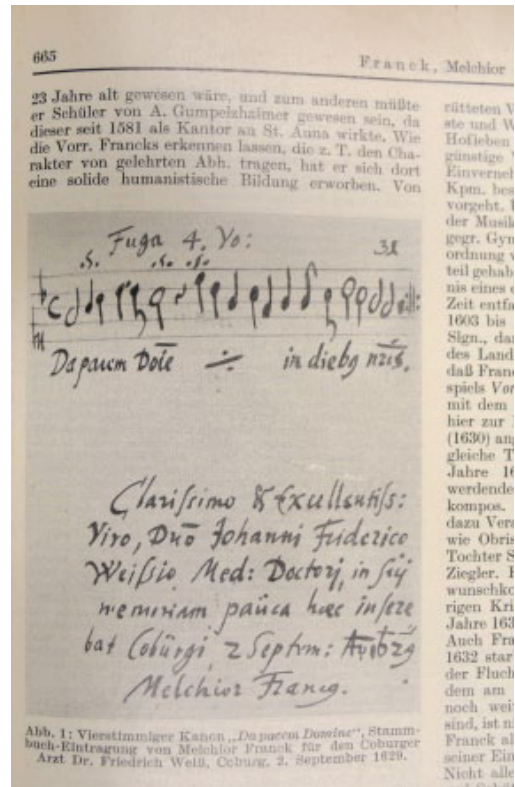 665
Franck, Melchior
23 Jahre alt gewesen wäre, und zum anderen müßte
er Schüler von A. Gumpelzhaimer gewesen sein, da
dieser seit 1581 als Kantor an St. Anna wirkte. Wie
die Vorr. Francks erkennen lassen, die z. T. den Cha-
rakter von gelehrten Abh. tragen, hat er sich dort
eine solide humanistische Bildung erworben. Von
Fuga 4. Vo:
31
.s. .s. .s.
Da pacem Dõie ÷ in dieb9 nr̃is.
Clarissimo & Excellentiss:
Viro, Dnõ Johanni Friderico
Weissio Med: Doctorj, in suj
memoriam pauca haec insere
bat Cobürgi, 2 Septem:
Melchior Franc9.
Abb. 1: Vierstimmiger Kanon „Da pacem Domine“, Stamm-
buch-Eintragung von Melchior Franck für den Coburger
Arzt Dr. Friedrich Weiß, Coburg, 2. September 1629.
rütteten
ste und
Hofleben
günstige
Einverneh
Kpm. bes
vorgeht.
der Musik
gegr. Gym
ordnung
teil gehab
nis eines
Zeit entfa
1603 bis
Slgn., dar
des Land
daß Franc
spiels Vor
mit dem
hier zur
(1630) ang
gleiche T
Jahre 16
werdende
kompos.
dazu Vera
wie Obris
Tochter S
Ziegler.
wunschko
rigen Kri
Jahre 163
Auch Fra
1632 star
der Fluch
dem am
noch wei
sind, ist ni
Franck al
seiner Ein
Nicht alle